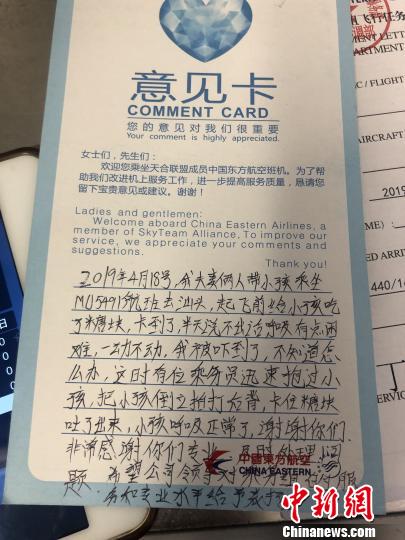 意见卡
COMMENT CARD
您的意见对我们很重要
Your comment is highly appreciated.
女士们，先生们：
欢迎您乘坐天合联盟成员中国东方航空班机。为了帮
助我们改进机上服务工作，进一步提高服务质量，恳请您
留下宝贵意见或建议。谢谢！
Ladies and gentlemen:
Welcome aboard China Eastern Airlines, a
member of SkyTeam Alliance. To improve our
service, we appreciate your comments and
suggestions.
Thank you!
2019年4月18号，我夫妻俩人带小孩乘坐
MU5491航班去汕头，起飞前给小孩吃
了糖块，卡到了，半天说不出话呼吸有点困
难，一动不动，我被吓到了，不知道怎
么办，这时有位乘务员迅速抱过小
孩，把小孩倒立拍打后背，卡住糖块
吐了出来，小孩呼吸正常了，谢谢你们.
非常感谢你们专业
题. 希望公司领导对
专业水平给予
中國東方航空
CHINA EASTERN
飞行任务
MENT LETT
ARTMENT
EC / FLIGHT
AIRCRAFT
2019
ED ARRI
440/14
日
中新网
www.chinanews.com